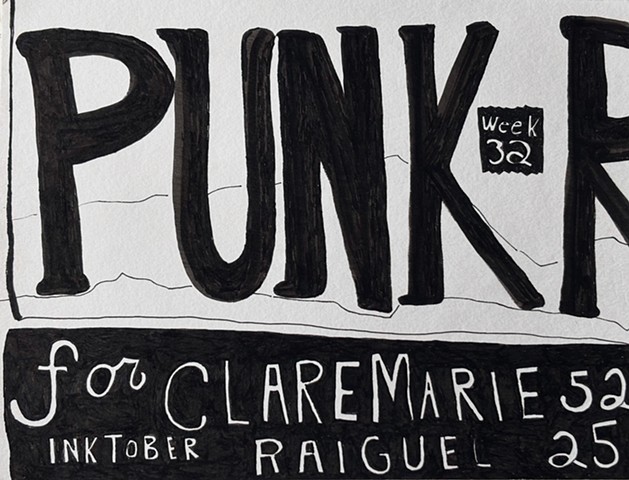 PUNK R
Week
32
for CLAREMARIE 52
INKTOBER RAIGUEL 25